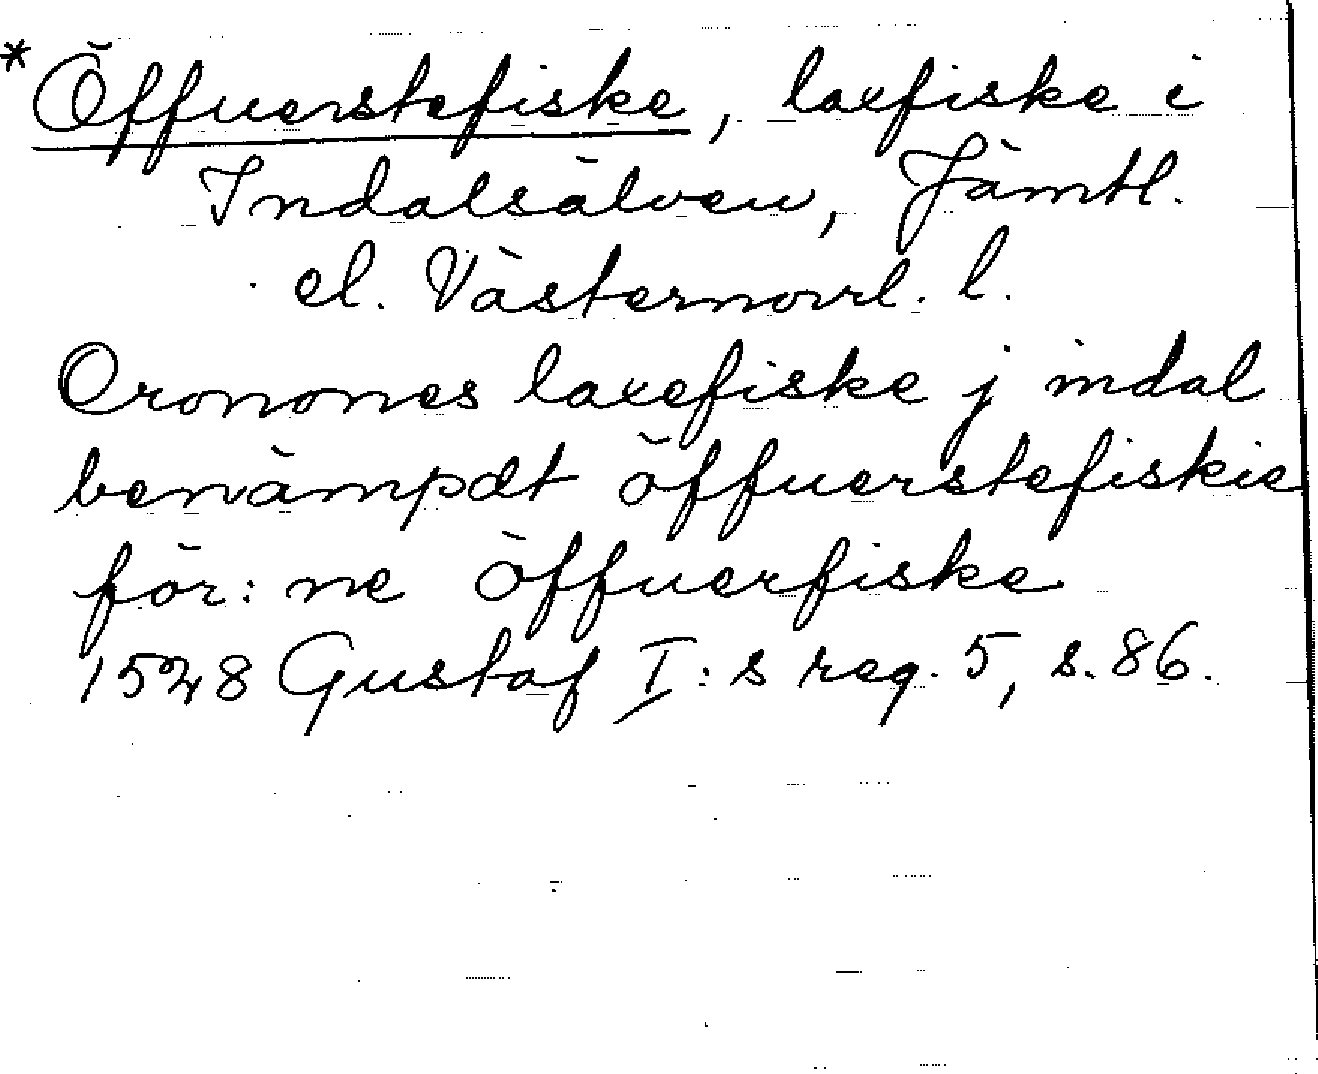 * Öffuerstefiske, laxfiske i
Indalsälven, Jämtl.
el. Västernorrl. l.
Cronones laxefiske j indal
benämpdt öffuerstefiskie
för: ne öffuerfiske
1528 Gustaf I:s reg. 5, s. 86.